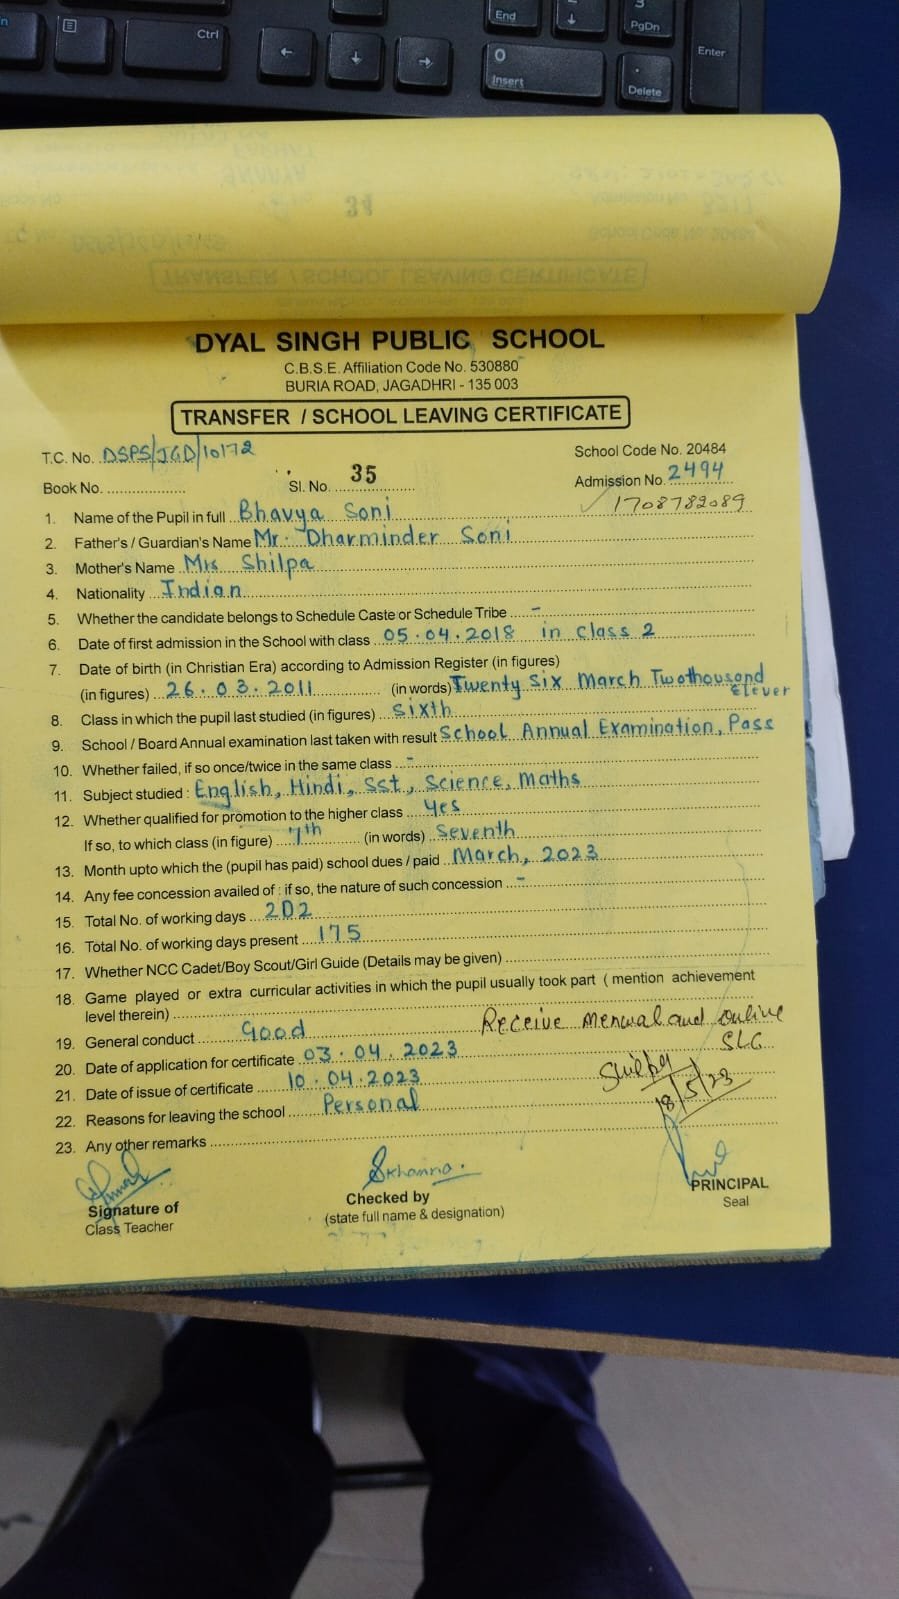 End
↓
3
PgDn
Ctrl
←
↓
→
0
Insert
.
Delete
Enter
34
TRANSFER / SCHOOL LEAVING CERTIFICATE
DYAL SINGH PUBLIC SCHOOL
C.B.S.E. Affiliation Code No. 530880
BURIA ROAD, JAGADHRI - 135 003
TRANSFER / SCHOOL LEAVING CERTIFICATE
T.C. No. DSPS/JGD/10172 School Code No. 20484
Book No. Sl. No. 35 Admission No. 2494
1708782089
1. Name of the Pupil in full Bhavya Soni
2. Father's / Guardian's Name Mr. Dharminder Soni
3. Mother's Name Mrs Shilpa
4. Nationality Indian
5. Whether the candidate belongs to Schedule Caste or Schedule Tribe -
6. Date of first admission in the School with class 05.04.2018 in class 2
7. Date of birth (in Christian Era) according to Admission Register (in figures)
(in figures) 26.03.2011 (in words) Twenty Six March Twothousond
Elever
8. Class in which the pupil last studied (in figures) sixth
9. School / Board Annual examination last taken with result School Annual Examination, Pass
10. Whether failed, if so once/twice in the same class -
11. Subject studied : English, Hindi, Sst, Science, Maths
12. Whether qualified for promotion to the higher class Yes
If so, to which class (in figure) 7th (in words) Seventh
13. Month upto which the (pupil has paid) school dues / paid March, 2023
14. Any fee concession availed of : if so, the nature of such concession -
15. Total No. of working days 202
16. Total No. of working days present 175
17. Whether NCC Cadet/Boy Scout/Girl Guide (Details may be given)
18. Game played or extra curricular activities in which the pupil usually took part ( mention achievement
level therein)
19. General conduct Good Receive menwal and online
SLC
20. Date of application for certificate 03.04.2023
21. Date of issue of certificate 10.04.2023 18/5/23
22. Reasons for leaving the school Personal
23. Any other remarks
Skhanna.
Signature of Checked by PRINCIPAL
Class Teacher (state full name & designation) Seal